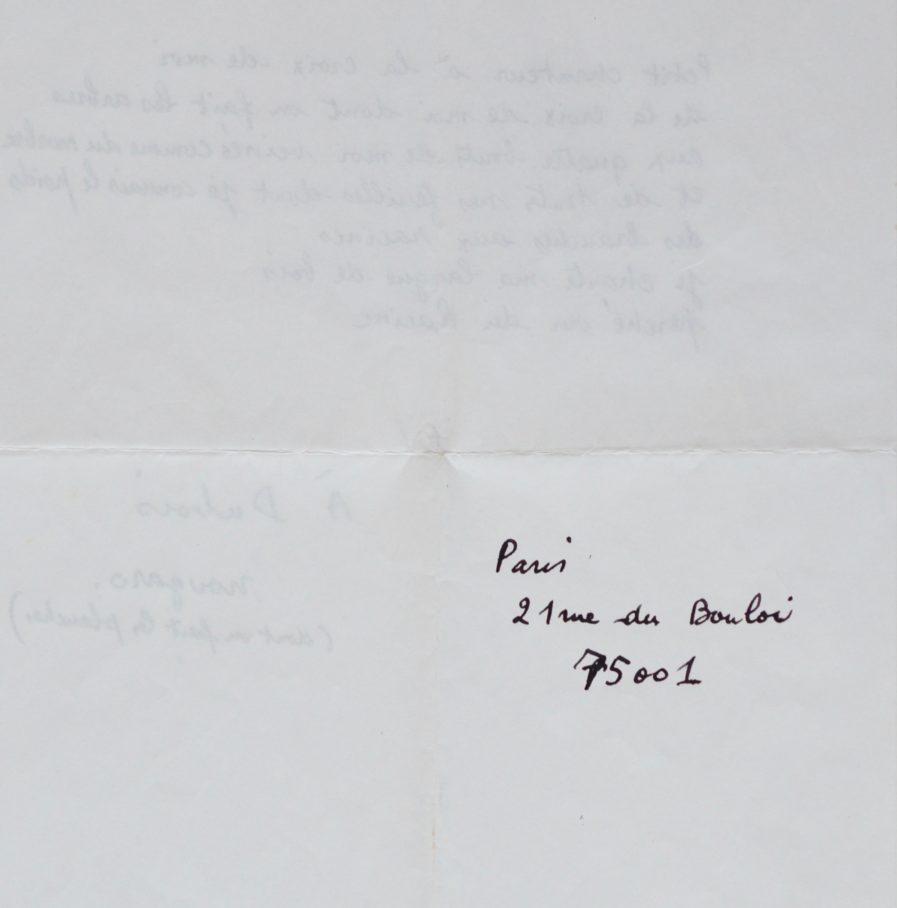 Petit chanteur à la croix de moi
de la croix de moi dont on fait les arbres
aux quatre bouts de moi veinés comme du marbre
et de toutes mes feuilles dont je connais le poids
des branches aux racines
je chante ma langue de bois
perché du Racine
À Dubois
Nougaro.
(dont on fait les planches)
Paris
21 rue du Bouloi
75001